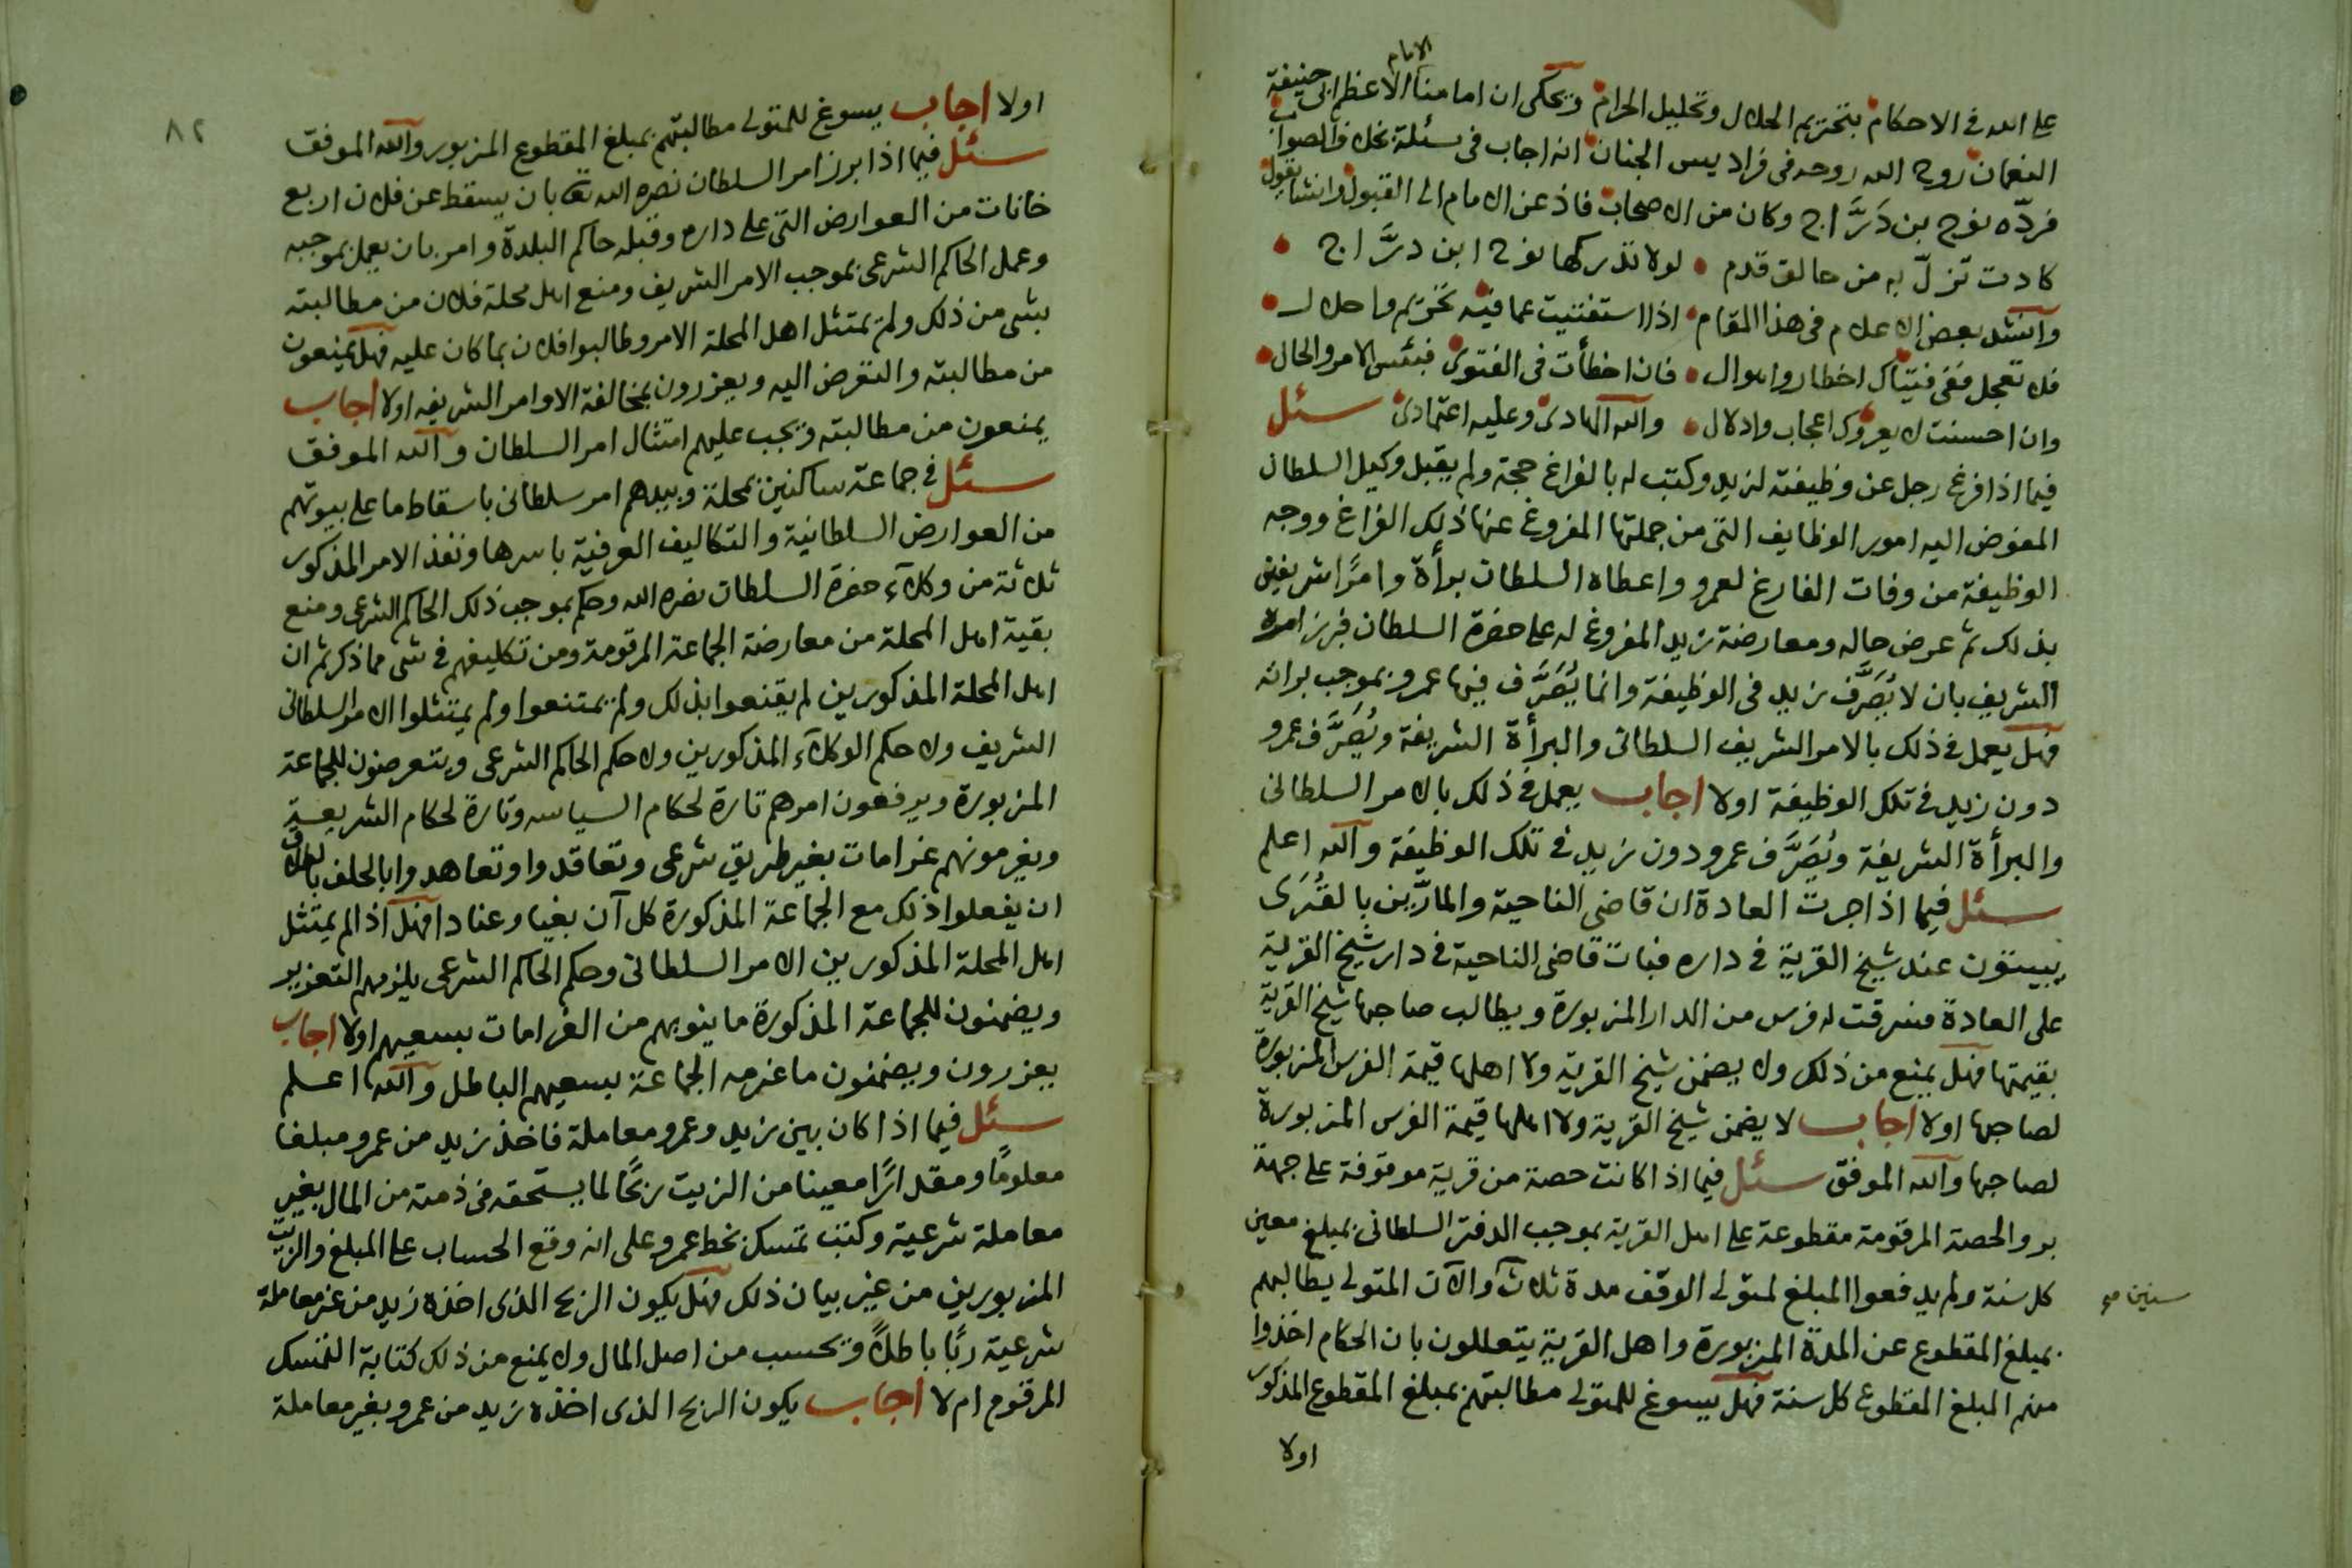 على الله فى الاحكام بتحريم الحلال وتحليل الحرام ويحكى ان امامنا الامام الاعظم ابى حنيفة
النعمان روح الله روحه فى فراديس الجنان انه اجاب فى مسئلة بخلاف الصواب
فردّه نوح بن دَرَّاج وكان من الاصحاب فاذعن الامام الى القبول وانشا يقول
كادت تزلّ به من حالق قدم لولا تدركها نوح ابن درَّاج
وانشد بعض الاعلام فى هذا المقام اذا استفتيت عما فيه تحريم واحلال
فلا تعجل ففى فتياك اخطار واهوال فان اخطأت فى الفتوى فبئس الامر والحال
وان احسنت لا يعروك اعجاب وادلال والله الهادى وعليه اعتمادى سئل
فيما اذا فرغ رجل عن وظيفته لزيد وكتب له بالفراغ حجة ولم يقبل وكيل السلطان
المفوض اليه امور الوظايف التى من جملتها المفروغ عنها ذلك الفراغ ووجه
الوظيفة من وفات الفارغ لعمرو واعطاه السلطان برأة وامرًا شريفين
بذلك ثم عرض حاله ومعارضة زيد المفروغ له على حضرة السلطان فبرز امره
الشريف بان لا يُصَرَّف زيد فى الوظيفة وانما يُصَرَّف فيها عمرو بموجب براته
فهل يعمل فى ذلك بالامر الشريف السلطانى والبرأة الشريفة ويُصَرَّف عمرو
دون زيد فى تلك الوظيفة اولا اجاب يعمل فى ذلك بالامر السلطانى
والبرأة الشريفة ويُصَرَّف عمرو دون زيد فى تلك الوظيفة والله اعلم
سئل فيما اذا جرت العادة ان قاضى الناحية والمارّين بالقُرَى
يبيتون عند شيخ القرية فى داره فبات قاضى الناحية فى دار شيخ القرية
على العادة فسرقت له فرس من الدار المزبورة ويطالب صاحبها شيخ القرية
بقيمتها فهل يمنع من ذلك ولا يضمن شيخ القرية ولا اهلها قيمة الفرس المزبورة
لصاحبها اولا اجاب لا يضمن شيخ القرية ولا اهلها قيمة الفرس المزبورة
لصاحبها والله الموفق سئل فيما اذا كانت حصة من قرية موقوفة على جهة
بر والحصة المرقومة مقطوعة على اهل القرية بموجب الدفتر السلطانى بمبلغ معين
كل سنة ولم يدفعوا المبلغ لمتولى الوقف مدة ثلاث والآن المتولى يطالبهم
سنين صح
بمبلغ المقطوع عن المدة المزبورة واهل القرية يتعللون بان الحكام اخذوا
منهم المبلغ المقطوع كل سنة فهل يسوغ للمتولى مطالبتهم بمبلغ المقطوع المذكور
اولا
٨٢
اولا اجاب يسوغ للمتولى مطالبتهم بمبلغ المقطوع المزبور والله الموفق
سئل فيما اذا برز امر السلطان نصره الله تعه بان يسقط عن فلان اربع
خانات من العوارض التى على داره وقبله حاكم البلدة وامر بان يعمل بموجبه
وعمل الحاكم الشرعى بموجب الامر الشريف ومنع اهل محلة فلان من مطالبته
بشى من ذلك ولم يمتثل اهل المحلة الامر وطالبوا فلان بما كان عليه فهل يمنعون
من مطالبته والتعرض اليه ويعزرون بمخالفة الاوامر الشريفه اولا اجاب
يمنعون من مطالبته ويجب عليهم امتثال امر السلطان والله الموفق
سئل فى جماعة ساكنين بمحلة وبيدهم امر سلطانى باسقاط ما على بيوتهم
من العوارض السلطانية والتكاليف العرفية باسرها ونفذ الامر المذكور
ثلاثة من وكلاء حضرة السلطان نصره الله وحكم بموجب ذلك الحاكم الشرعى ومنع
بقية اهل المحلة من معارضة الجماعة المرقومة ومن تكليفهم فى شى مما ذكر ثم ان
اهل المحلة المذكورين لم يقنعوا بذلك ولم يمتنعوا ولم يمتثلوا الامر السلطانى
الشريف ولا حكم الوكلاء المذكورين ولا حكم الحاكم الشرعى ويتعرضون للجماعة
المزبورة ويرفعون امرهم تارة لحكام السياسه وتارة لحكام الشريعة
ويغرمونهم غرامات بغير طريق شرعى وتعاقدوا وتعاهدوا بالحلف بالطلاق
ان يفعلوا ذلك مع الجماعة المذكورة كل آن بغيا وعنادا فهل اذا لم يمتثل
اهل المحلة المذكورين الامر السلطانى وحكم الحاكم الشرعى يلزمهم التعزير
ويضمنون للجماعة المذكورة ما ينوبهم من الغرامات بسعيهم اولا اجاب
يعزرون ويضمنون ما غرمه الجماعة بسعيهم الباطل والله اعلم
سئل فيما اذا كان بين زيد وعمرو معاملة فاخذ زيد من عمرو مبلغا
معلومًا ومقدارًا معينا من الزيت ربحًا لما يستحقه فى ذمته من المال بغير
معاملة شرعية وكتب تمسك بخط عمرو على انه وقع الحساب على المبلغ والزيت
المزبورين من غير بيان ذلك فهل يكون الربح الذى اخذه زيد من غير معاملة
شرعية ربًا باطلاً ويحسب من اصل المال ولا يمنع من ذلك كتابة التمسك
المرقوم ام لا اجاب يكون الربح الذى اخذه زيد من عمرو بغير معاملة